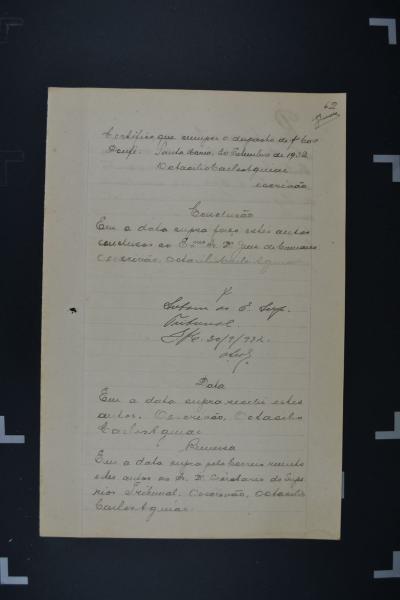 62
Certifico que cumpri o despacho de f
Doufé. Santa Maria, 20 Setembro de 1932
Octacilio Carlos Aguiar
escrivão
Conclusão
Em a data supra faço estes autos
conclusos ao Exmo Sr. Dr. Juiz de Comarca.
O escrivão, Octacilio Carlos Aguiar
Subam ao E. Sup.
Tribunal.
20/9/932.
Data
Em a data supra recebi estes
autos. O escrivão, Octacilio
Carlos Aguiar
Remessa
Em a data supra pelo Correio remeto
estes autos ao Sr. Dr. Secretario do Supe
rior Tribunal. O escrivão, Octacilio
Carlos Aguiar